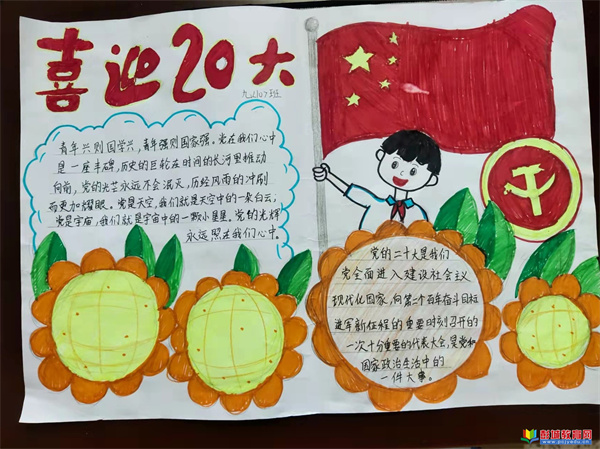 喜迎20大
九(10)班
青年兴则国家兴,青年强则国家强。党在我们心中
是一座丰碑,历史的巨轮在时间的长河里推动
向前,党的光芒永远不会泯灭,历经风雨的冲刷
而更加耀眼。党是天空,我们就是天空中的一朵白云;
党是宇宙,我们就是宇宙中的一颗小星星。党的光辉
永远照在我们心中。
党的二十大是我们
党全面进入建设社会主义
现代化国家、向第二个百年奋斗目标
进军新征程的重要时刻召开的
一次十分重要的代表大会,是党和
国家政治生活中的
一件大事。
彭城教育网